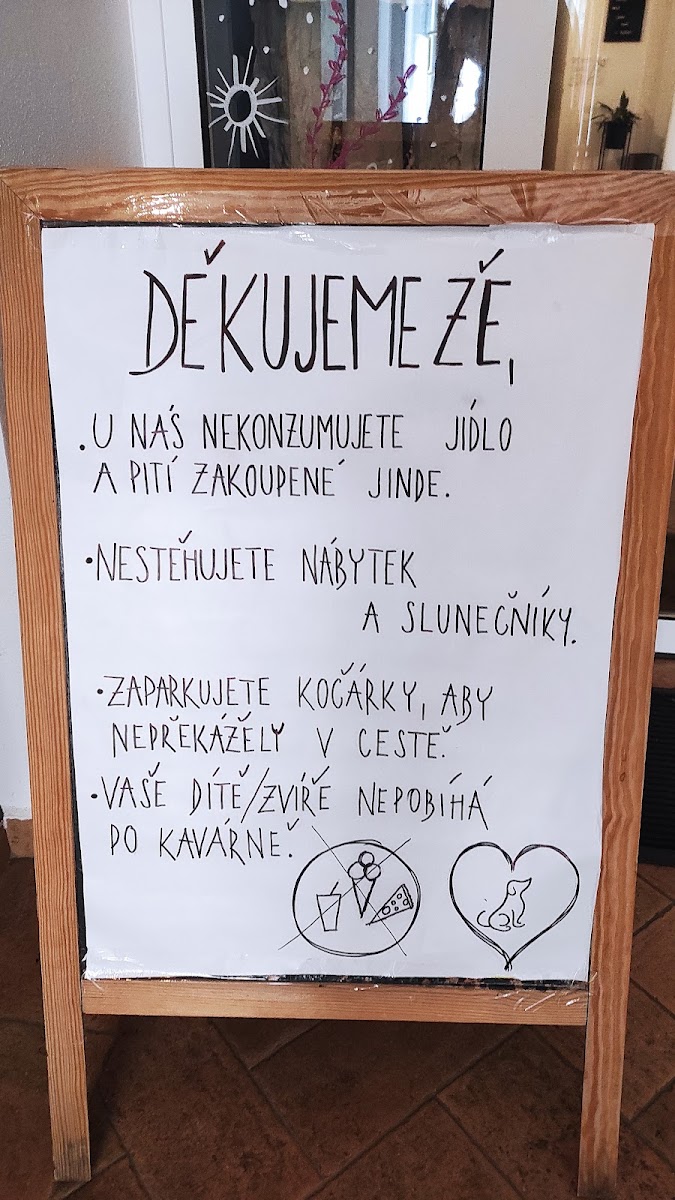 DĚKUJEME ŽE,
. U NÁS NEKONZUMUJETE JÍDLO
A PITÍ ZAKOUPENÉ JINDE.
• NESTĚHUJETE NÁBYTEK
A SLUNEČNÍKY.
• ZAPARKUJETE KOČÁRKY, ABY
NEPŘEKÁŽELY V CESTĚ.
• VAŠE DÍTĚ/ZVÍŘE NEPOBÍHÁ
PO KAVÁRNĚ.